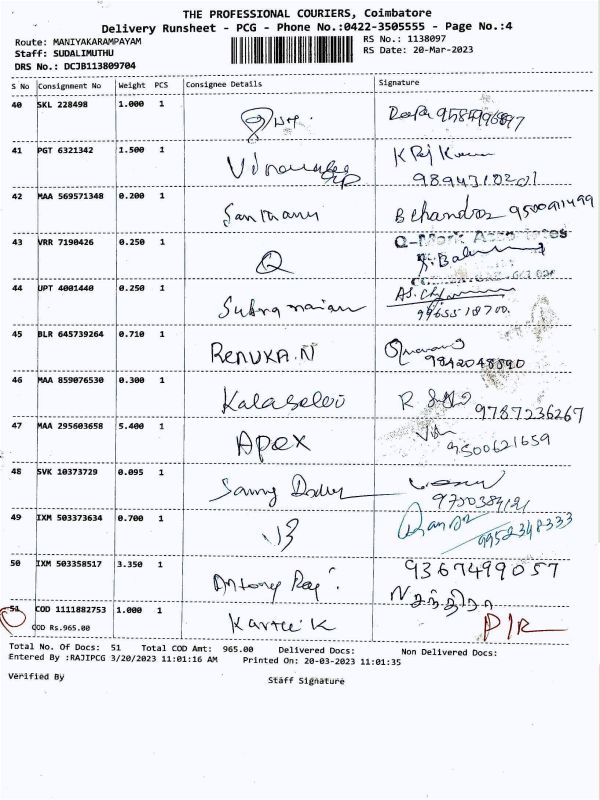 THE PROFESSIONAL COURIERS, Coimbatore
Delivery Runsheet - PCG - Phone No.:0422-3505555 - Page No.:4
Route: MANIYAKARAMPAYAM
RS No.: 1138097
Staff: SUDALIMUTHU
RS Date: 20-Mar-2023
DRS No.: DCJB113809704
S No Consignment No Weight PCS Consignee Details Signature
40 SKL 228498 1.000 1
41 PGT 6321342 1.500 1
9894310201
42 MAA 569571348 0.200 1
43 VRR 7190426 0.250 1 Q
Q-Mark Associates
44 UPT 4001440 0.250 1
9965518700.
45 BLR 645739264 0.710 1 RENUKA.N
9842048890
46 MAA 859076530 0.300 1 Kalaselvi
9787236267
47 MAA 295603658 5.400 1 Apex
9500621659
48 SVK 10373729 0.095 1
49 IXM 503373634 0.700 1
9952348333
50 IXM 503358517 3.350 1 Antony Raj 9367499057
51 COD 1111882753 1.000 1 Karthik
COD Rs.965.00
Total No. Of Docs: 51 Total COD Amt: 965.00 Delivered Docs: Non Delivered Docs:
Entered By :RAJIPCG 3/20/2023 11:01:16 AM Printed On: 20-03-2023 11:01:35
Verified By Staff Signature